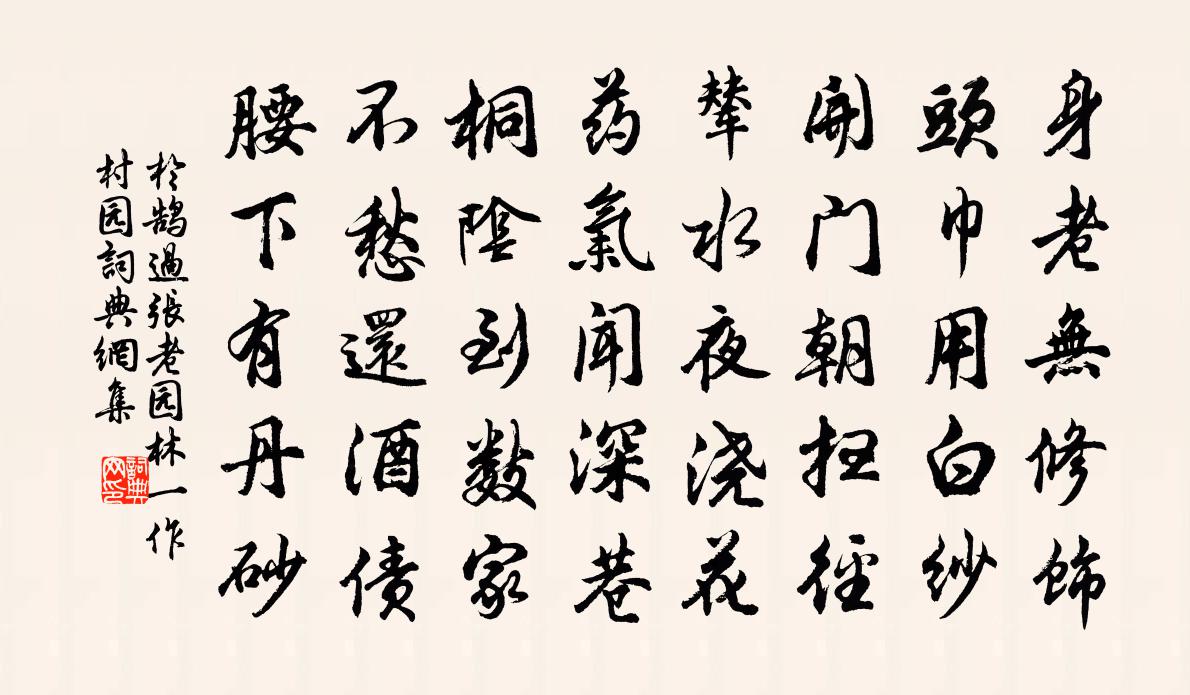 身老無修飾
頭巾用白紗
開门朝扫徑
輦水夜浇花
药氣闻深巷
桐陰到数家
不愁還酒债
腰下有丹砂
於鹄過張老园林一作
村园詞典網集
詞典网印